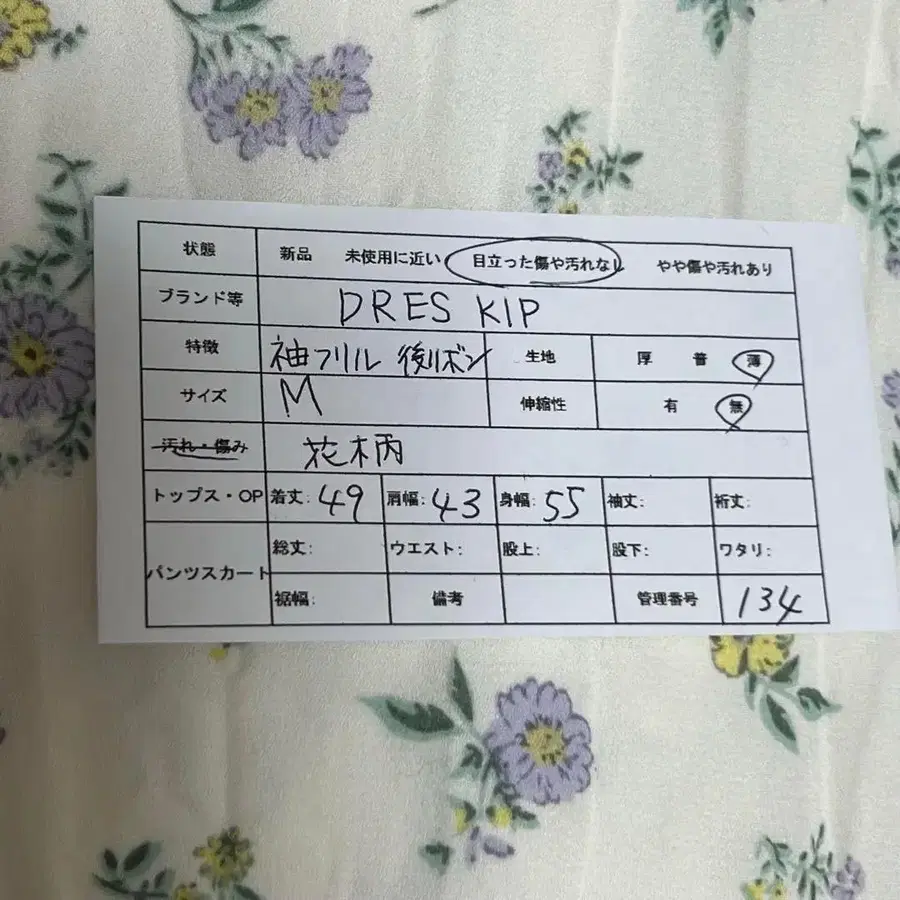 状態 新品 未使用に近い 目立った傷や汚れなし やや傷や汚れあり
ブランド等 DRES KIP
特徴 袖フリル 後リボン 生地 厚 普 薄
サイズ M 伸縮性 有 無
汚れ・傷み 花柄
トップス・OP 着丈: 49 肩幅: 43 身幅: 55 袖丈: 裄丈:
パンツスカート 総丈: ウエスト: 股上: 股下: ワタリ:
裾幅: 備考 管理番号 134